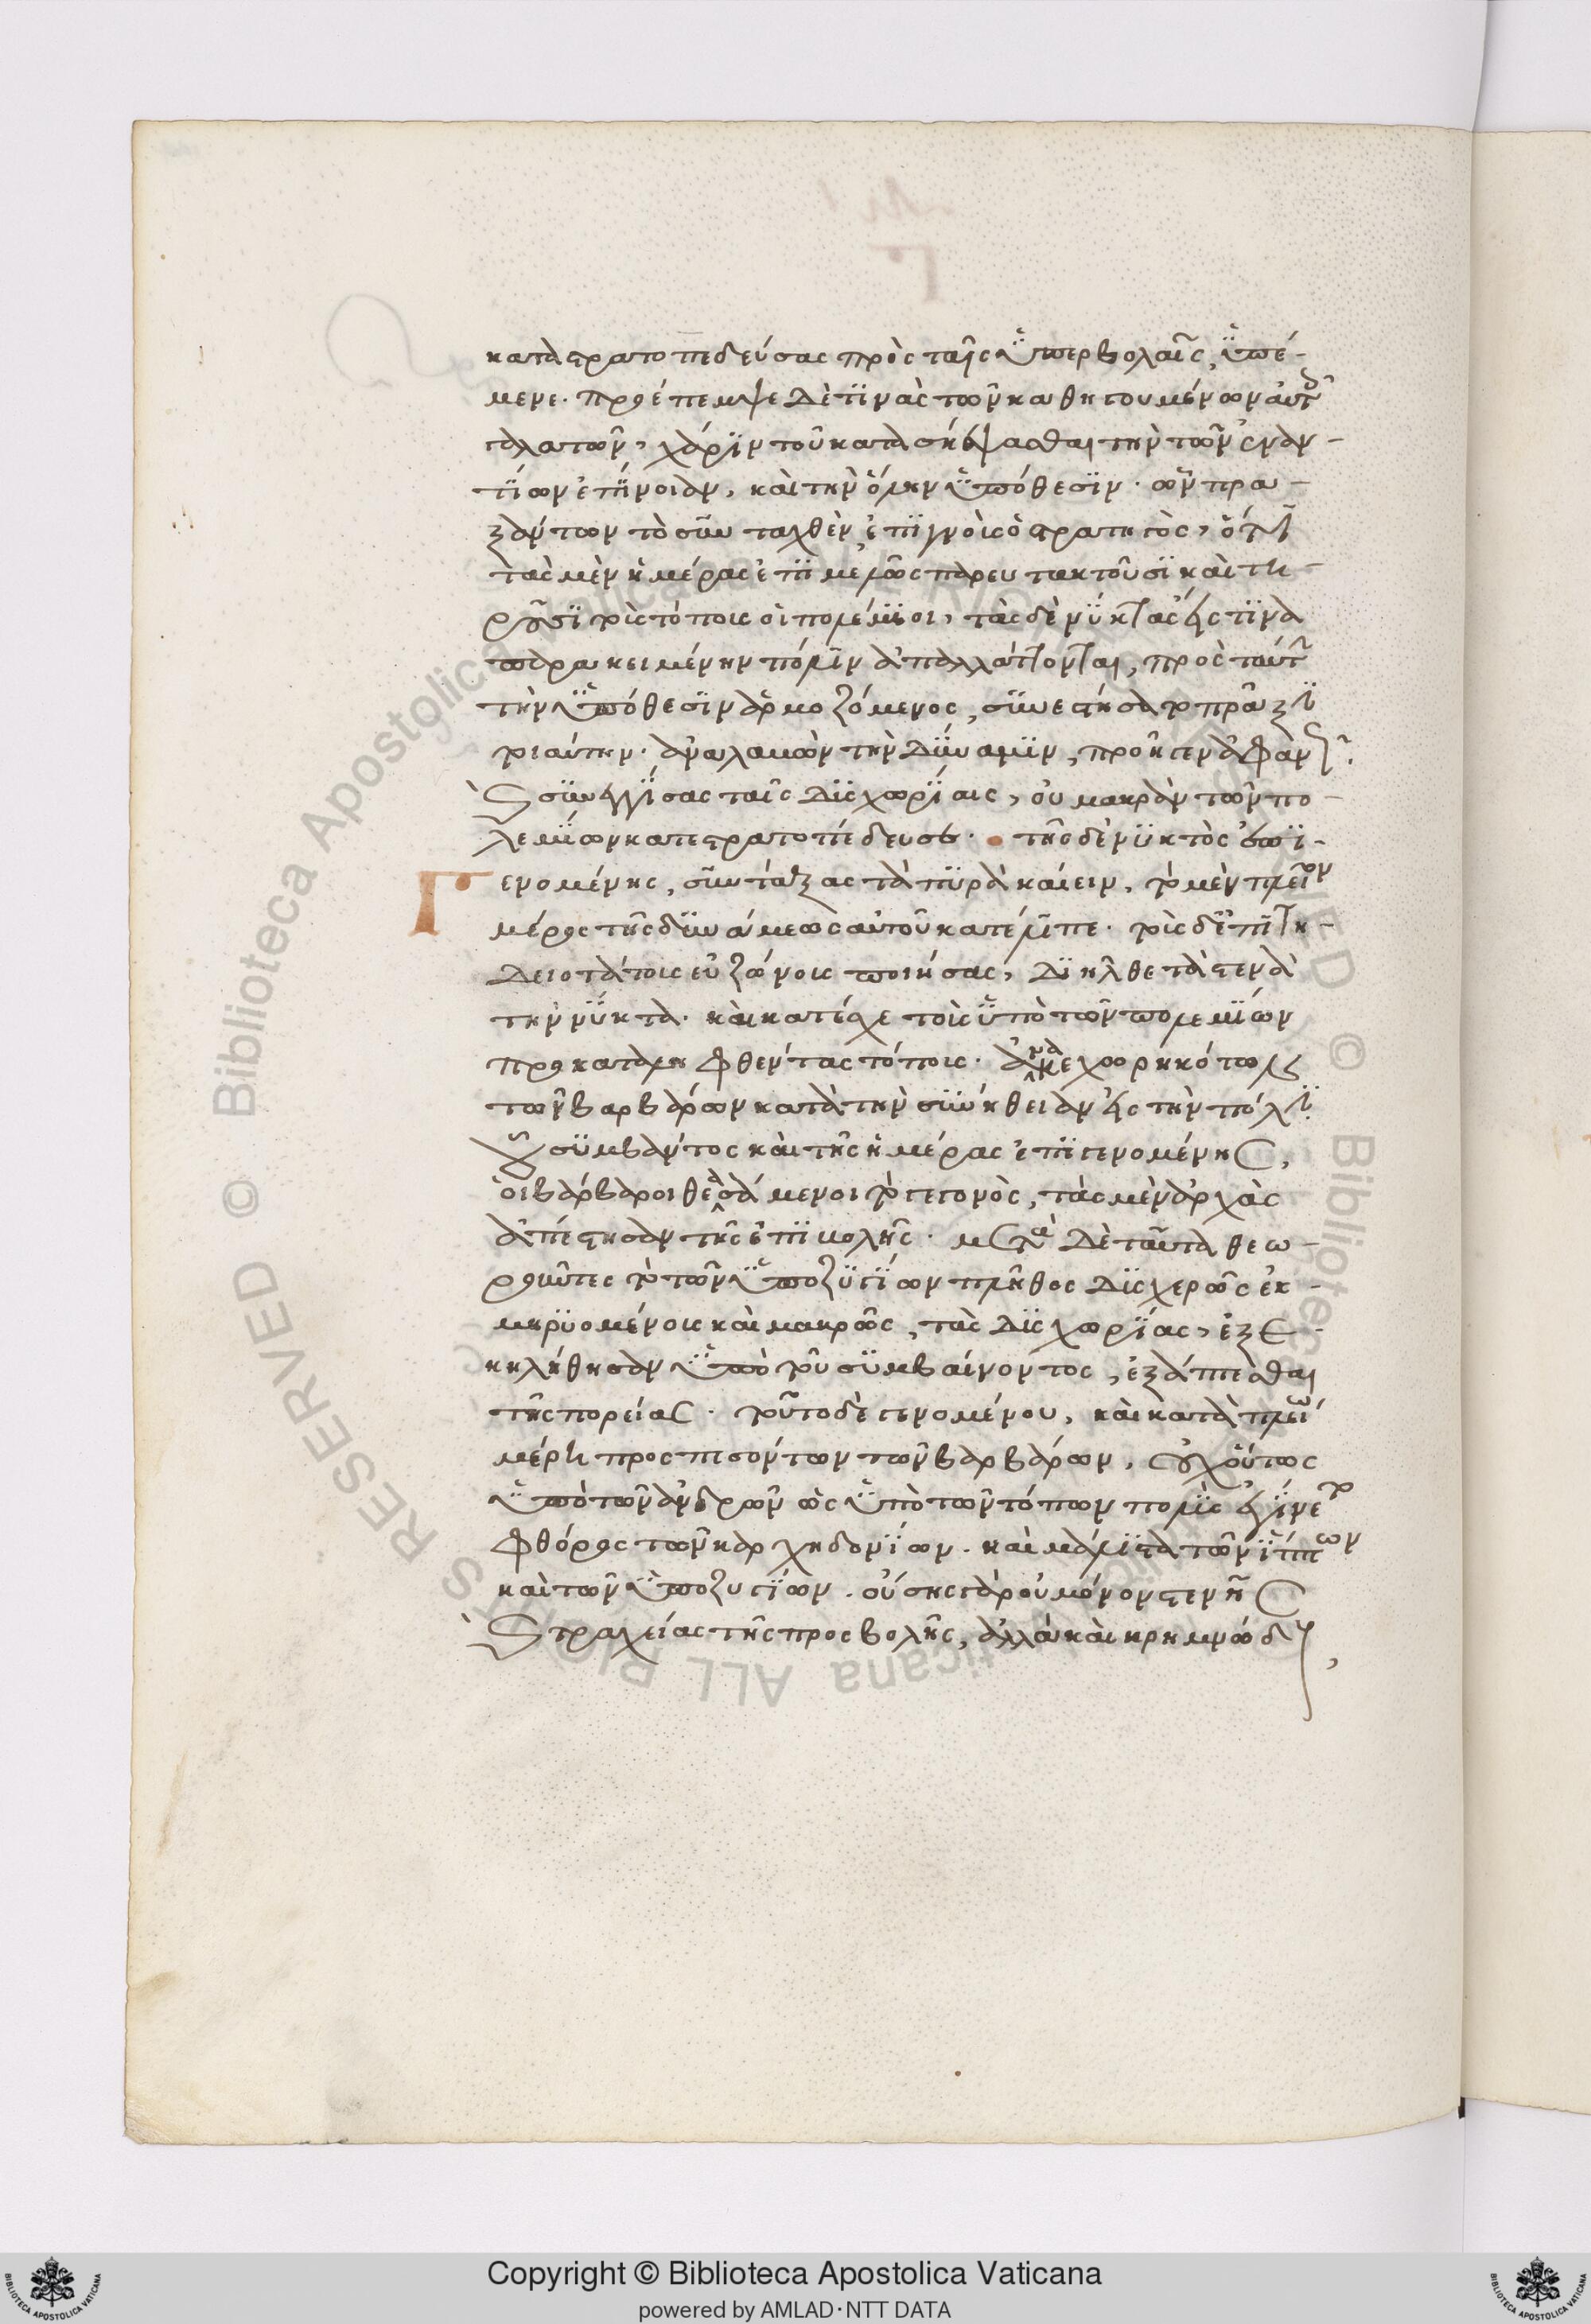 καταστρατοπεδεύσας πρὸς ταῖς ὑπερβολαῖς, ὑπέ-
μενε. προέπεμψε δὲ τινὰς τῶν καθηγουμένων αὐτοῦ
γαλατῶν, χάριν τοῦ κατασκέψασθαι τὴν τῶν ἐναν-
τίων ἐπίνοιαν, καὶ τὴν ὅλην ὑπόθεσιν. ὧν πρα-
ξάντων τὸ συνταχθὲν, ἐπιγνοὺς ὁ στρατηγὸς, ὅτι
τὰς μὲν ἡμέρας ἐπιμελῶς παρευτακτοῦσι καὶ τη-
ροῦσι τοὺς τόπους οἱ πολέμιοι, τὰς δὲ νύκτας εἴς τινα
παρακειμένην πόλιν ἀπαλλάττονται, πρὸς ταύτην
τὴν ὑπόθεσιν ἁρμοζόμενος, συνεστήσατο πρᾶξιν
τοιαύτην. ἀναλαβὼν τὴν δύναμιν, προῆγεν ἐμφανῶς.
καὶ συνεγγίσας ταῖς δυσχωρίαις, οὐ μακρὰν τῶν πο-
λεμίων κατεστρατοπέδευσε. τῆς δὲ νυκτὸς ἐπι-
Γενομένης, συντάξας τὰ πυρὰ καίειν, τὸ μὲν πλεῖον
μέρος τῆς δυνάμεως αὐτοῦ κατέλιπε. τοὺς δ' ἐπιτη-
δειοτάτους εὐζώνους ποιήσας, διῆλθε τὰ στενὰ
τὴν νύκτα. καὶ κατέσχε τοὺς ὑπὸ τῶν πολεμίων
προκαταληφθέντας τόπους. ἀνακεχωρηκότων
τῶν βαρβάρων κατὰ τὴν συνήθειαν εἰς τὴν πόλιν.
οὗ συμβάντος καὶ τῆς ἡμέρας ἐπιγενομένης,
οἱ βάρβαροι θεασάμενοι τὸ γεγονὸς, τὰς μὲν ἀρχὰς
ἀπέστησαν τῆς ἐπιβολῆς. μετὰ δὲ ταῦτα θεω-
ροῦντες τὸ τῶν ὑποζυγίων πλῆθος δυσχερῶς ἐκ-
μηρυομένους καὶ μακρῶς, τὰς δυσχωρίας, ἐξε-
κλήθησαν ὑπὸ τοῦ συμβαίνοντος, ἐξάπτεσθαι
τῆς πορείας. τούτου δὲ γενομένου, καὶ κατὰ πλείω
μέρη προσπεσόντων τῶν βαρβάρων, οὐχ οὕτως
ὑπὸ τῶν ἀνδρῶν ὡς ὑπὸ τῶν τόπων πολὺς ἐγίνετο
φθόρος τῶν καρχηδονίων. καὶ μάλιστα τῶν ἵππων
καὶ τῶν ὑποζυγίων. οὔσης γὰρ οὐ μόνον στενῆς
καὶ τραχείας τῆς προσβολῆς, ἀλλὰ καὶ κρημνώδους,